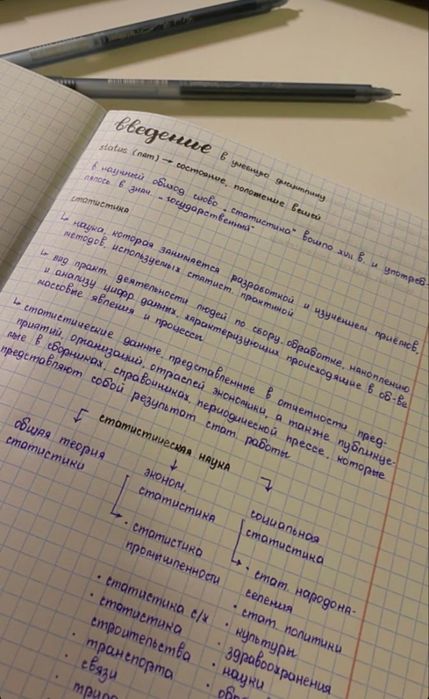 введение в учебную дисциплину
status (лат) → состояние, положение вещей
в научный обиход слово „статистика" вошло XVIII в. и употреб-
лялось в знач. „государственный"
статистика
↳ наука, которая занимается разработкой и изучением приёмов,
методов, используемых статист. практикой
↳ вид практ. деятельности людей по сбору, обработке, накоплению
и анализу цифр. данных, характеризующих происходящие в об-ве
массовые явления и процессы
↳ статистические данные, представленные в отчетности пред-
приятий, организаций, отраслей экономики, а также публикуе-
мые в сборниках, справочниках, периодической прессе, которые
представляют собой результат стат. работы
статистическая наука
общая теория
статистики
эконом.
статистика
• статистика
промышленности
• статистика с/х
• статистика
строительства
• транспорта
• связи
социальная
статистика
• стат. народона-
селения
• стат. политики
• культуры
• здравоохранения
• науки